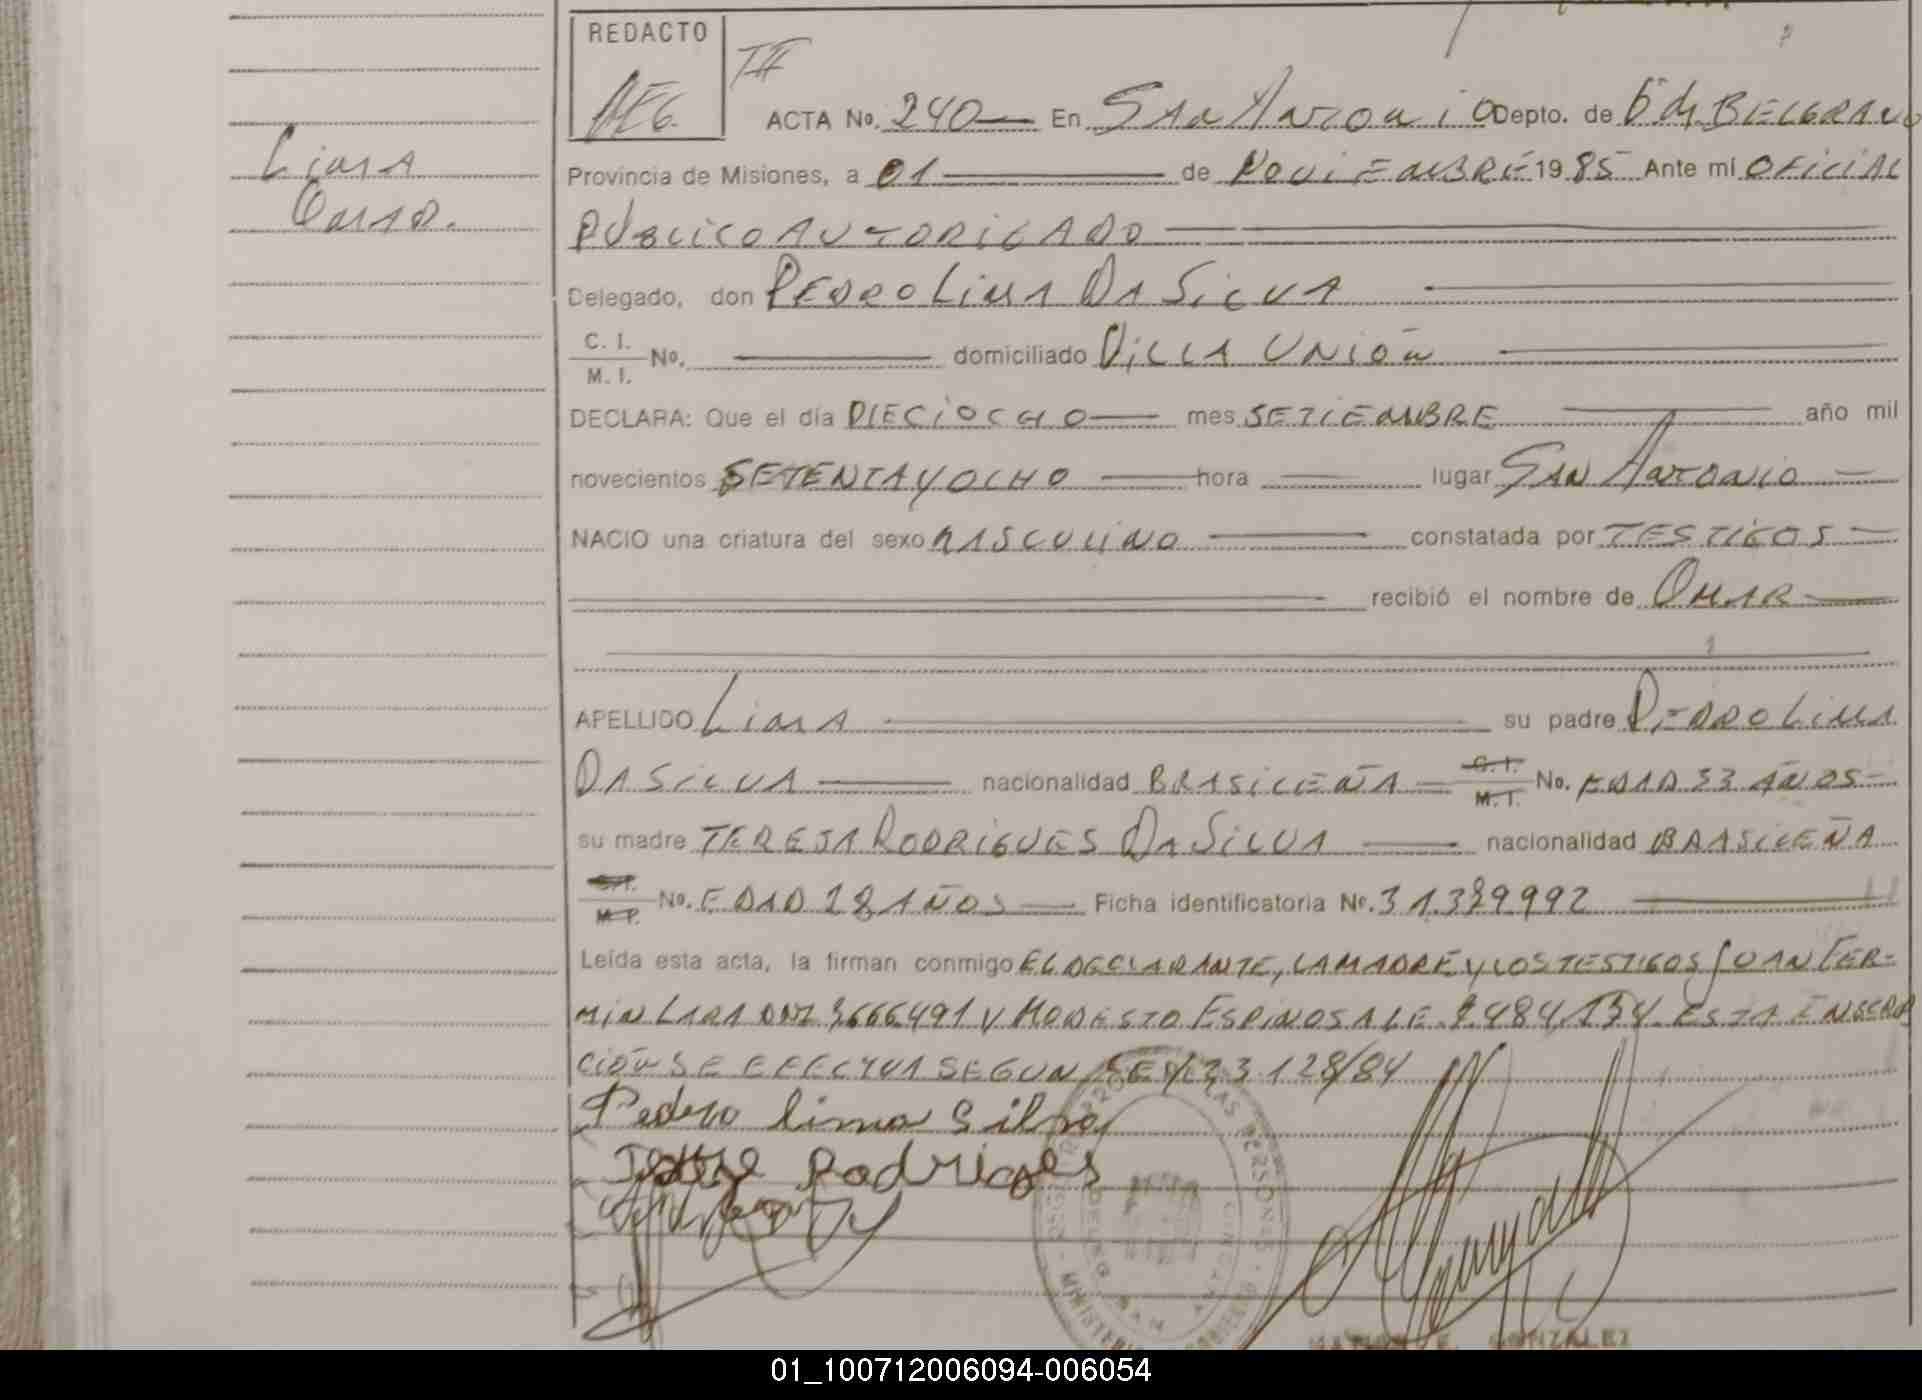 REDACTO
ACTA No. 240 En San Antonio Depto. de Gral BELGRANO
Lima
Omar.
Provincia de Misiones, a 01 de NOVIEMBRE 1985 Ante mi OFICIAL
PÚBLICO AUTORIZADO
Delegado, don PEDRO LIMA DA SILVA
C. I.
M. I. No. domiciliado VILLA UNIÓN
DECLARA: Que el día DIECIOCHO mes SETIEMBRE año mil
novecientos SETENTA Y OCHO hora lugar SAN ANTONIO
NACIO una criatura del sexo MASCULINO constatada por TESTIGOS
recibió el nombre de OMAR
APELLIDO LIMA su padre PEDRO LIMA
DA SILVA nacionalidad BRASILEÑA C. I. M. I. No. EDAD 33 AÑOS
su madre TERESA RODRIGUES DA SILVA nacionalidad BRASILEÑA
No. EDAD 28 AÑOS Ficha identificatoria No. 31.339992
Leída esta acta, la firman conmigo EL DECLARANTE, LA MADRE Y LOS TESTIGOS JUAN FER-
MIN LARA DNI 3666491 Y MODESTO ESPINOSA LE 2484,134 ESTA INSCRIP
CIÓN SE EFECTUA SEGUN 128/84
Pedro lima Silva
Rodrigues
GONZALEZ
01_100712006094-006054